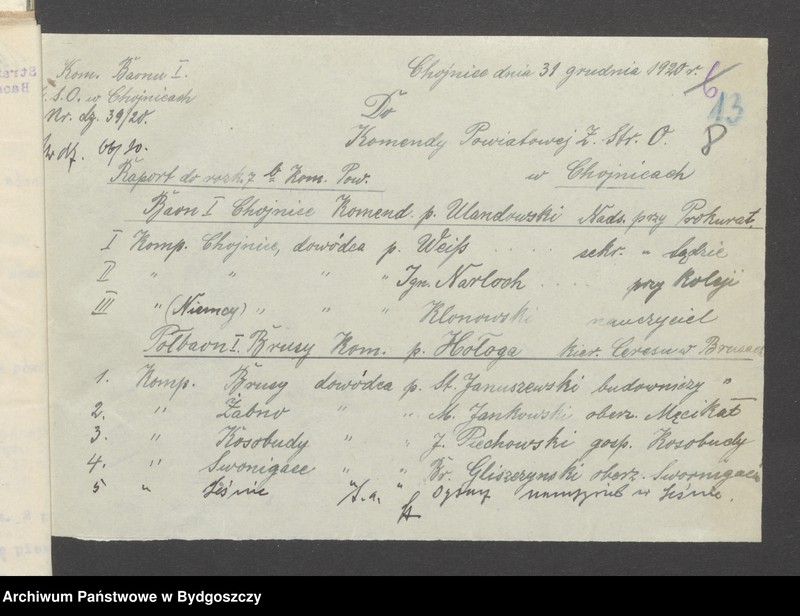 Kom. Baonu I.
S.O. w Chojnicach
Nr. dz. 39/20.
Chojnice dnia 31 grudnia 1920 r.
6
13
8
Do
Komendy Powiatowej Z. Str. O.
w Chojnicach
Raport do rozk. 7 Kom. Pow.
Baon I Chojnice Komend. p. Ulandowski Nads. przy Prokurat.
I Komp. Chojnice, dowódca p. Weiß sekr. " Sądzie
II " " " " Ign. Narloch przy Koleji
III " (Niemcy) " " " Klonowski nauczyciel
Półbaon I. Brusy Kom. p. Hołoga kier. Ceresu w Brusach
1. Komp. Brusy dowódca p. St. Januszewski budowniczy "
2. " Żabno " " M. Jankowski oberz. Męcikał
3. " Kosobudy " " J. Piechowski gosp. Kosobudy
4. " Swornigace " " Br. Gliszczynski oberz. Swornigacie
5 " Leśnie " w Leśnie.
Archiwum Państwowe w Bydgoszczy